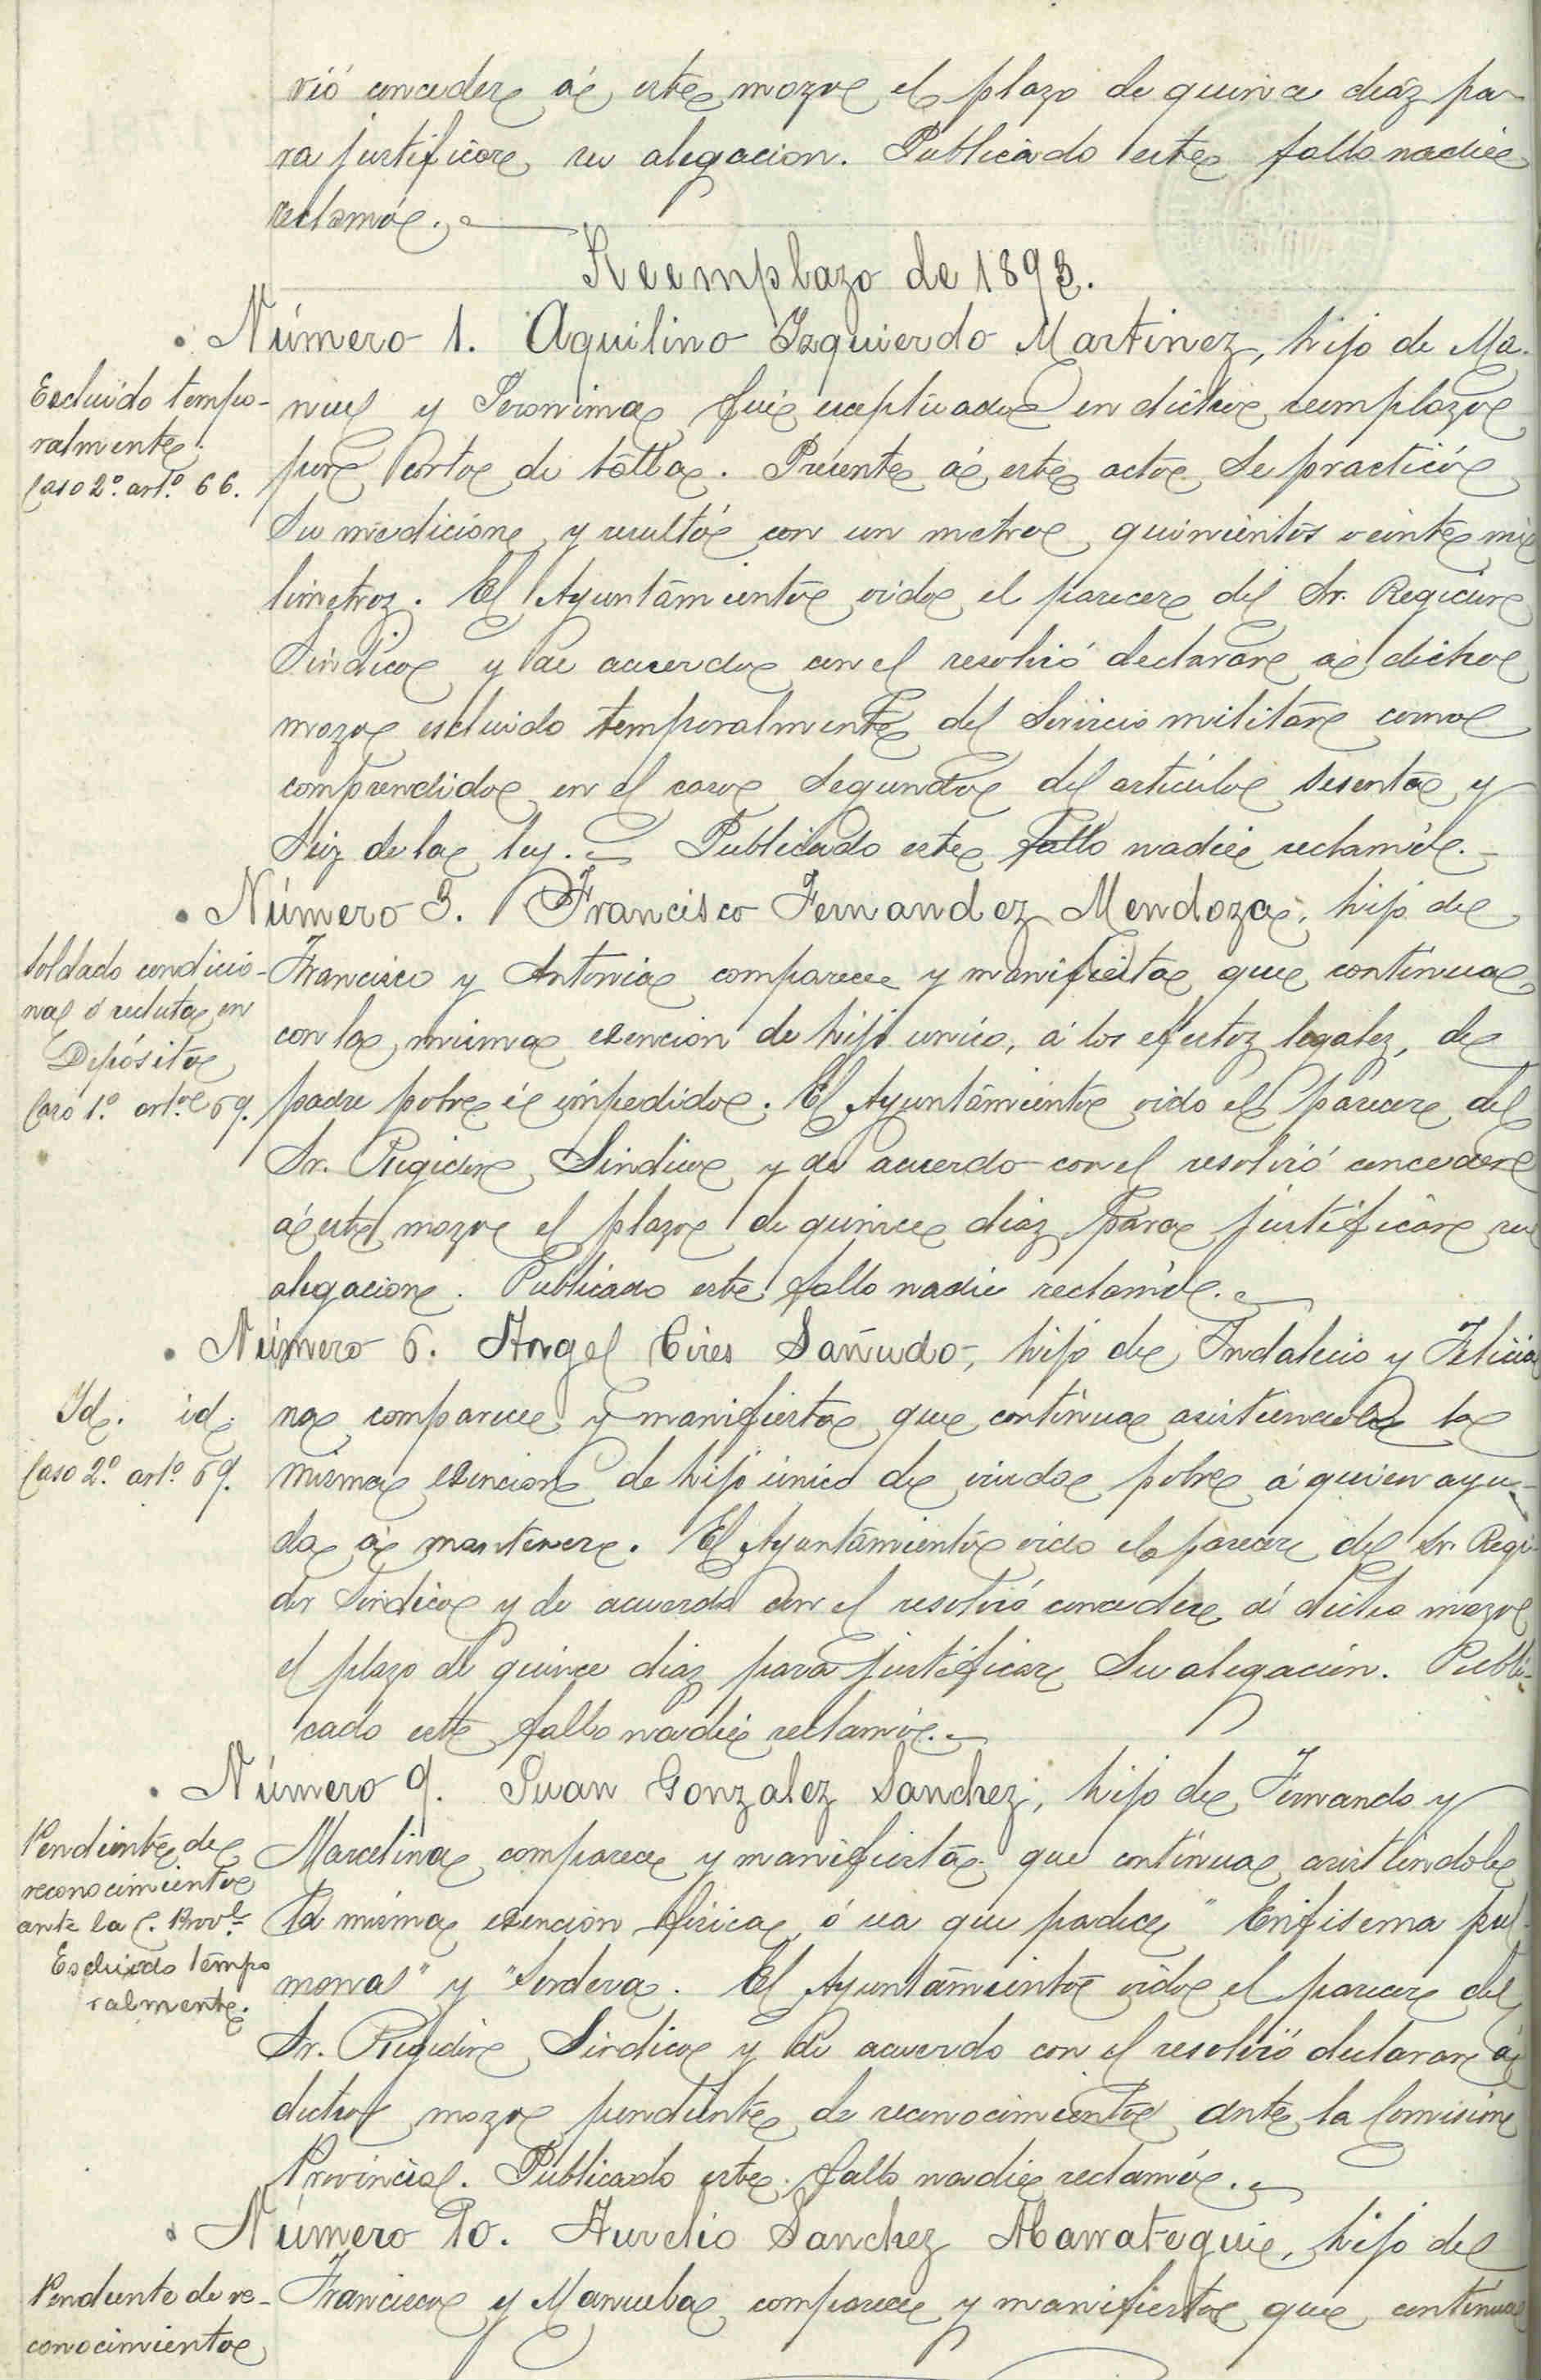 vió conceder á este mozo el plazo de quince diaz pa-
ra justificar su alegacion. Publicado este fallo nadie
reclamó.
Reemplazo de 1893.
Número 1. Aquilino Izquierdo Martinez, hijo de Ma-
Escluido tempo-
ralmente.
Caso 2º. artº. 66.
nuel y Geronima fué esceptuado en dicho reemplazo
por corto de talla. Presente á este acto se practicó
su medicion y resultó con un metro quinientos veinte mi
limetroz. El Ayuntamiento oido el parecer del Sr. Regidor
Sindico y de acuerdo con el resolvió declarar á dicho
mozo escluido temporalmente del Servicio militar como
comprendido en el caso Segundo del articulo sesenta y
Seiz de la ley. Publicado este fallo nadie reclamó.
Número 3. Francisco Fernandez Mendoza, hijo de
Soldado condicio-
nal ó recluta en
Depósito
Caso 1.º artº 69.
Francisco y Antonia comparece y manifiesta que continua
con la misma esencion de hijo unico, á los efectoz legalez, de
padre pobre é impedido. El Ayuntamiento oido el parecer del
Sr. Regidor Sindico y de acuerdo con el resolvió conceder
á este mozo el plazo de quince diaz para justificar su
alegacion. Publicado este fallo nadie reclamó.
Número 6. Angel Cires Sañudo, hijo de Indalecio y Felicia
Id. id.
Caso 2º. artº. 69.
na comparece y manifiesta que continua asistiendole la
misma esencion de hijo único de viuda pobre á quien ayu-
da á mantener. El Ayuntamiento oido el parecer del Sr. Regi-
dor Sindico y de acuerdo con el resolvió conceder á dicho mozo
el plazo de quince diaz para justificar su alegación. Publi-
cado este fallo nadie reclamó.
Número 9. Juan Gonzalez Sanchez, hijo de Fernando y
Pendiente de
reconocimiento
ante la C. Provl.
Escluido tempo
ralmente.
Marcelina comparece y manifiesta que continua asistiendole
la misma esencion física, ó sea que padece "Enfisema pul-
monal" y "Sordera. El Ayuntamiento oido el parecer del
Sr. Regidor Sindico y de acuerdo con el resolvió declarar á
dicho mozo pendiente de reconocimiento ante la Comision
Provincial. Publicado este fallo nadie reclamó.
Número 10. Aurelio Sanchez Marrategui, hijo de
Pendiente de re-
conocimiento
Francisco y Manuela comparece y manifiesta que continua